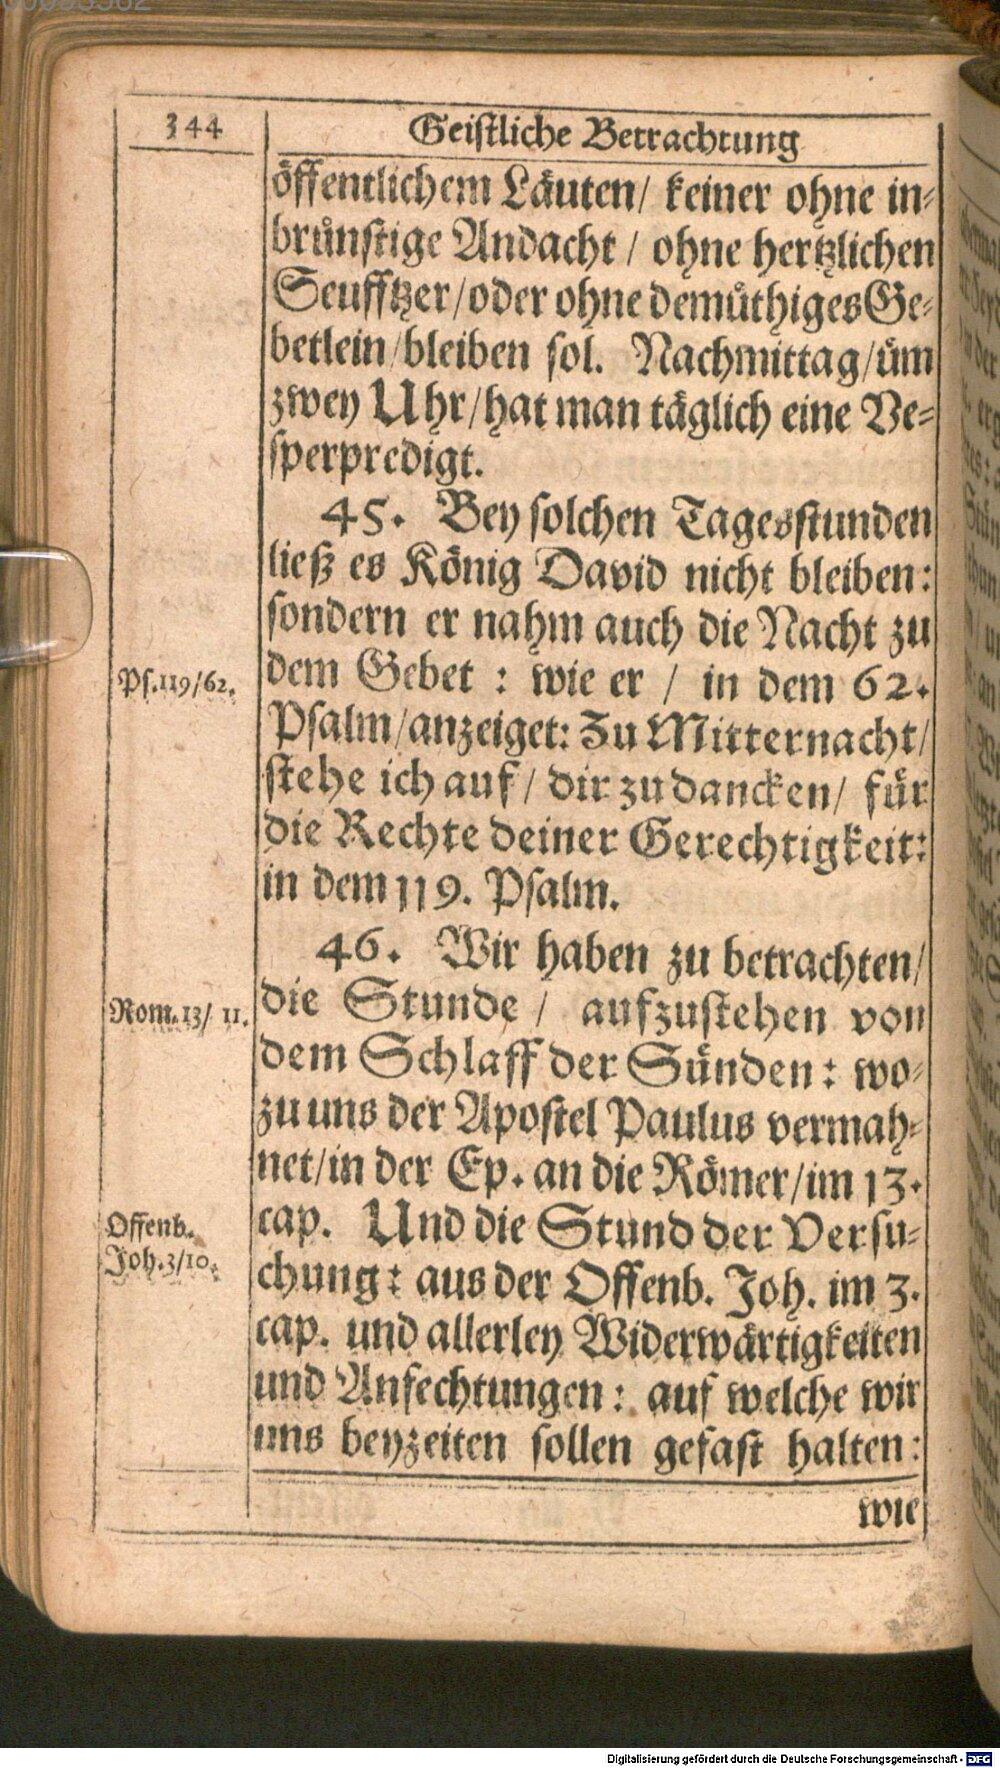 344
Geistliche Betrachtung
öffentlichem Läuten/ keiner ohne in-
brünstige Andacht / ohne hertzlichen
Seufftzer/oder ohne demüthiges Ge-
betlein/bleiben sol. Nachmittag/üm
zwey Uhr/hat man täglich eine Ve-
sperpredigt.
45. Bey solchen Tagesstunden
ließ es König David nicht bleiben:
sondern er nahm auch die Nacht zu
Ps.119/62.
dem Gebet : wie er / in dem 62.
Psalm/anzeiget: Zu Mitternacht/
stehe ich auf/ dir zu dancken/ für
die Rechte deiner Gerechtigkeit:
in dem 119. Psalm.
46. Wir haben zu betrachten/
Rom.13/ 11.
die Stunde / aufzustehen von
dem Schlaff der Sünden: wo-
zu uns der Apostel Paulus vermah-
net/in der Ep. an die Römer/im 13.
Offenb.
Joh.3/10.
cap. Und die Stund der Versu-
chung: aus der Offenb. Joh. im 3.
cap. und allerley Widerwärtigkeiten
und Anfechtungen: auf welche wir
uns beyzeiten sollen gefast halten:
wie
Digitalisierung gefördert durch die Deutsche Forschungsgemeinschaft - DFG